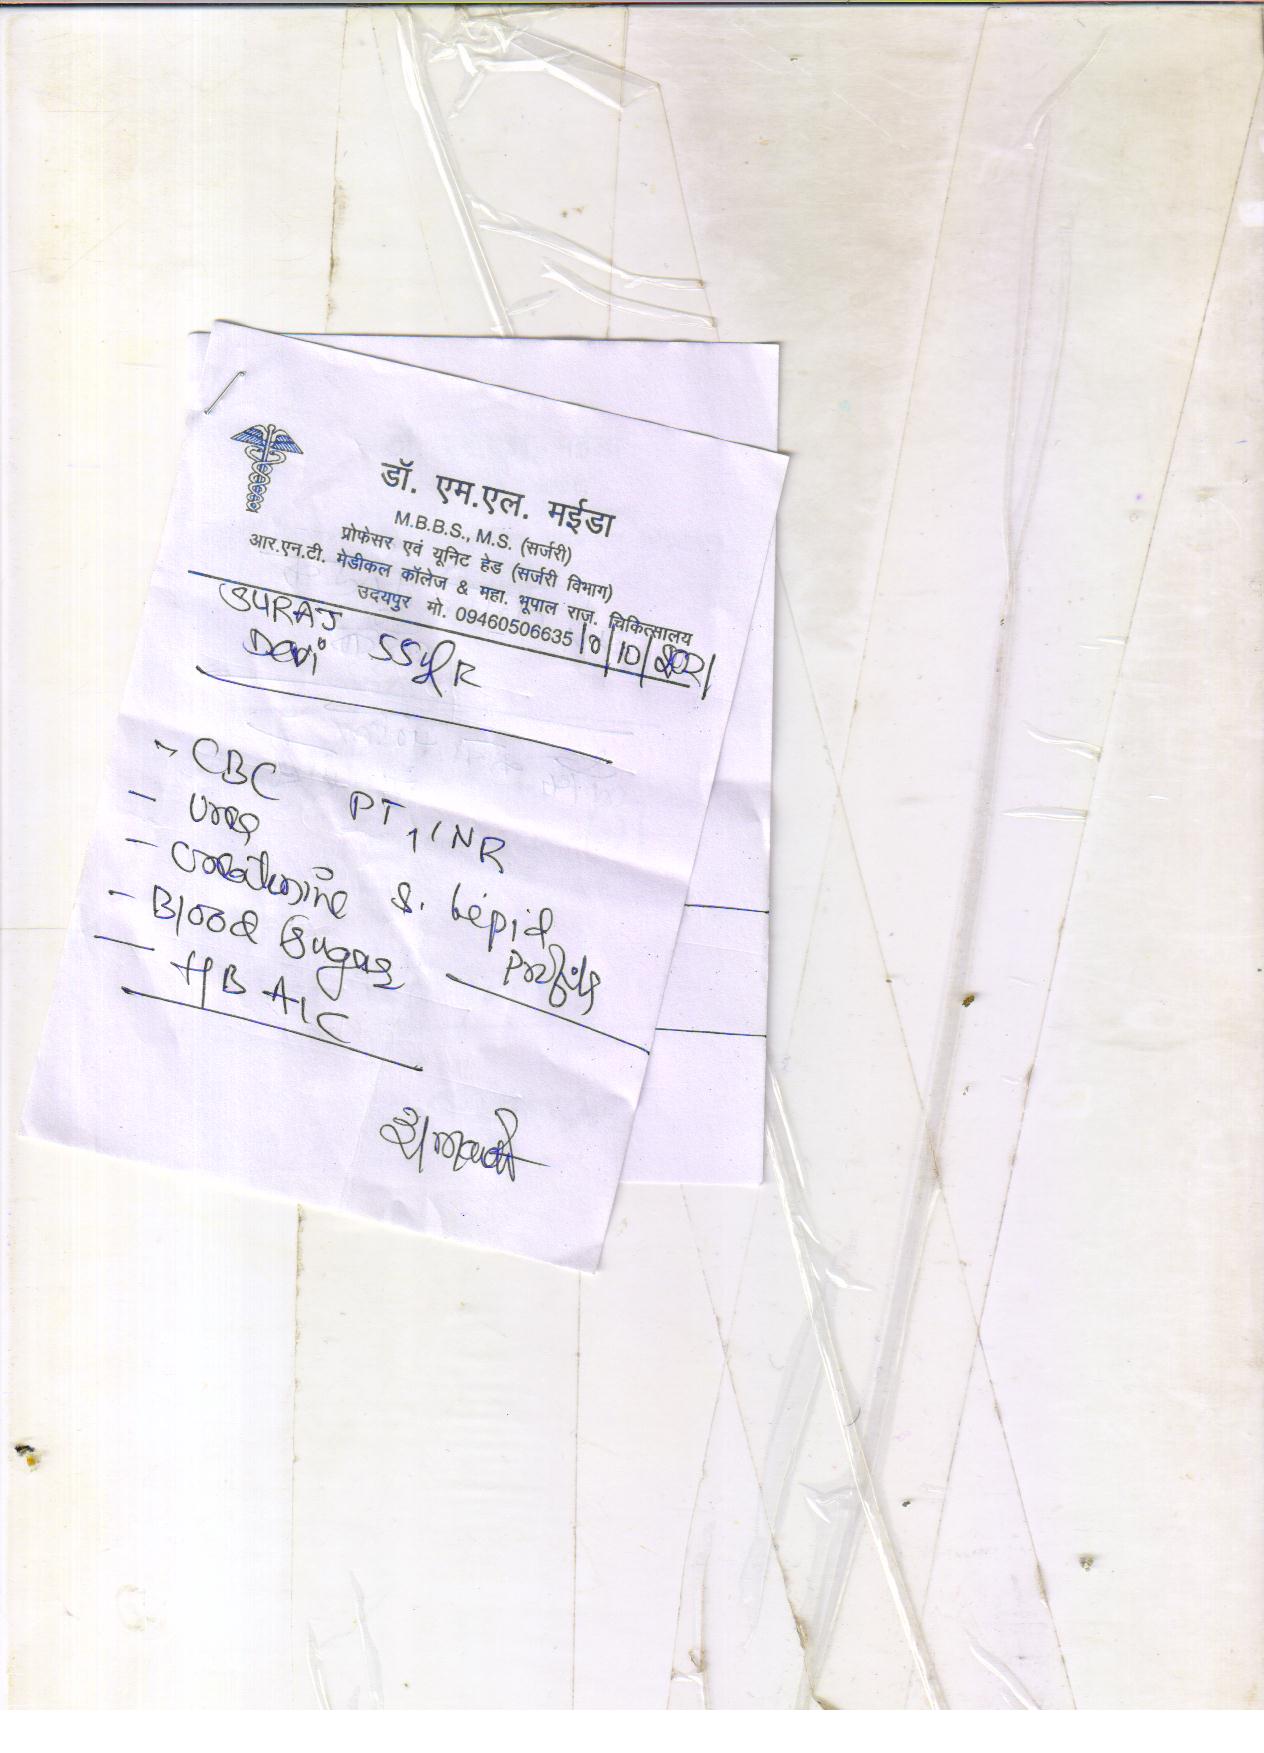 डॉ. एम.एल. मईडा
M.B.B.S., M.S. (सर्जरी)
प्रोफेसर एवं यूनिट हेड (सर्जरी विभाग)
आर.एन.टी. मेडीकल कॉलेज & महा. भूपाल राज. चिकित्सालय
उदयपुर मो. 09460506635
SURAJ
Devi
CBC PT, INR
- Urea
- Creatinine S. Lepid Profile
- Blood Sugar
- HB A1C